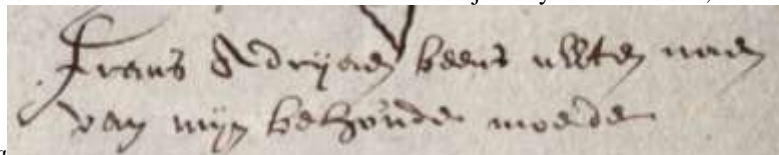 Frans Adryaen beens uutten naem
van mijn behoude moeder